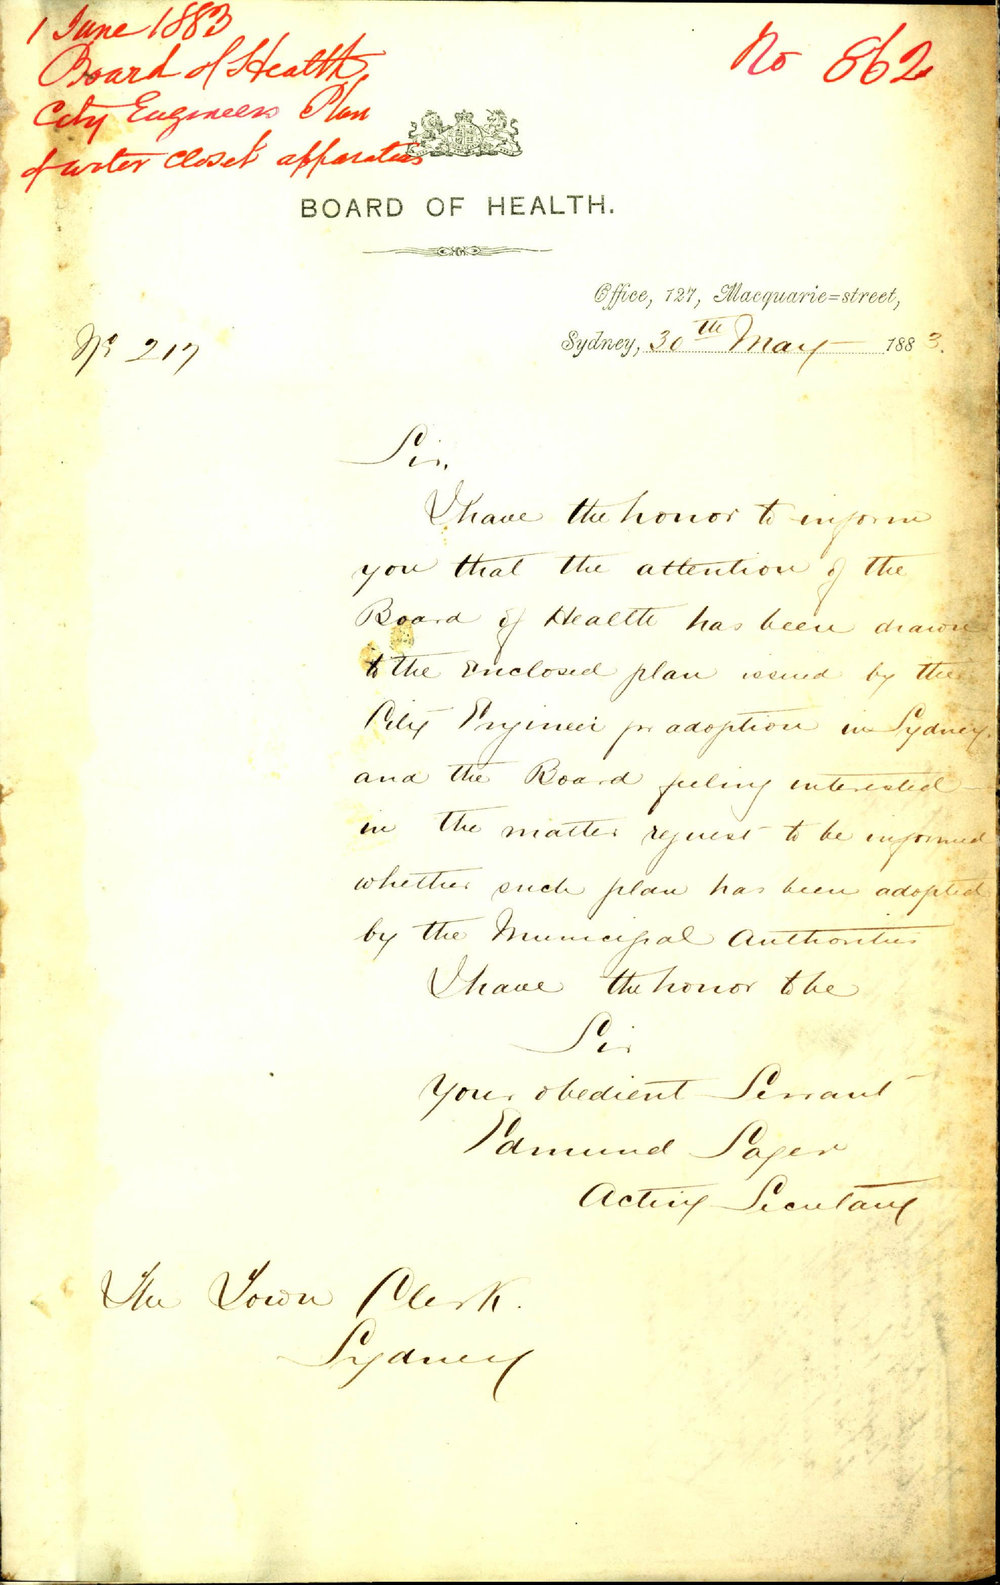 1 June 1883
Board of Health
City Engineers Plan
of water closet apparatus
No 862
BOARD OF HEALTH.
Office, 127, Macquarie=street,
Sydney, 30th May 1883.
No 217
Sir,
I have the honor to inform
you that the attention of the
Board of Health has been drawn
to the enclosed plan issued by the
City Engineer for adoption in Sydney
and the Board feeling interested
in the matter request to be informed
whether such plan has been adopted
by the Municipal Authorities
I have the honor to be
Sir
Your obedient Servant
Edmund Sager
Acting Secretary
The Town Clerk.
Sydney